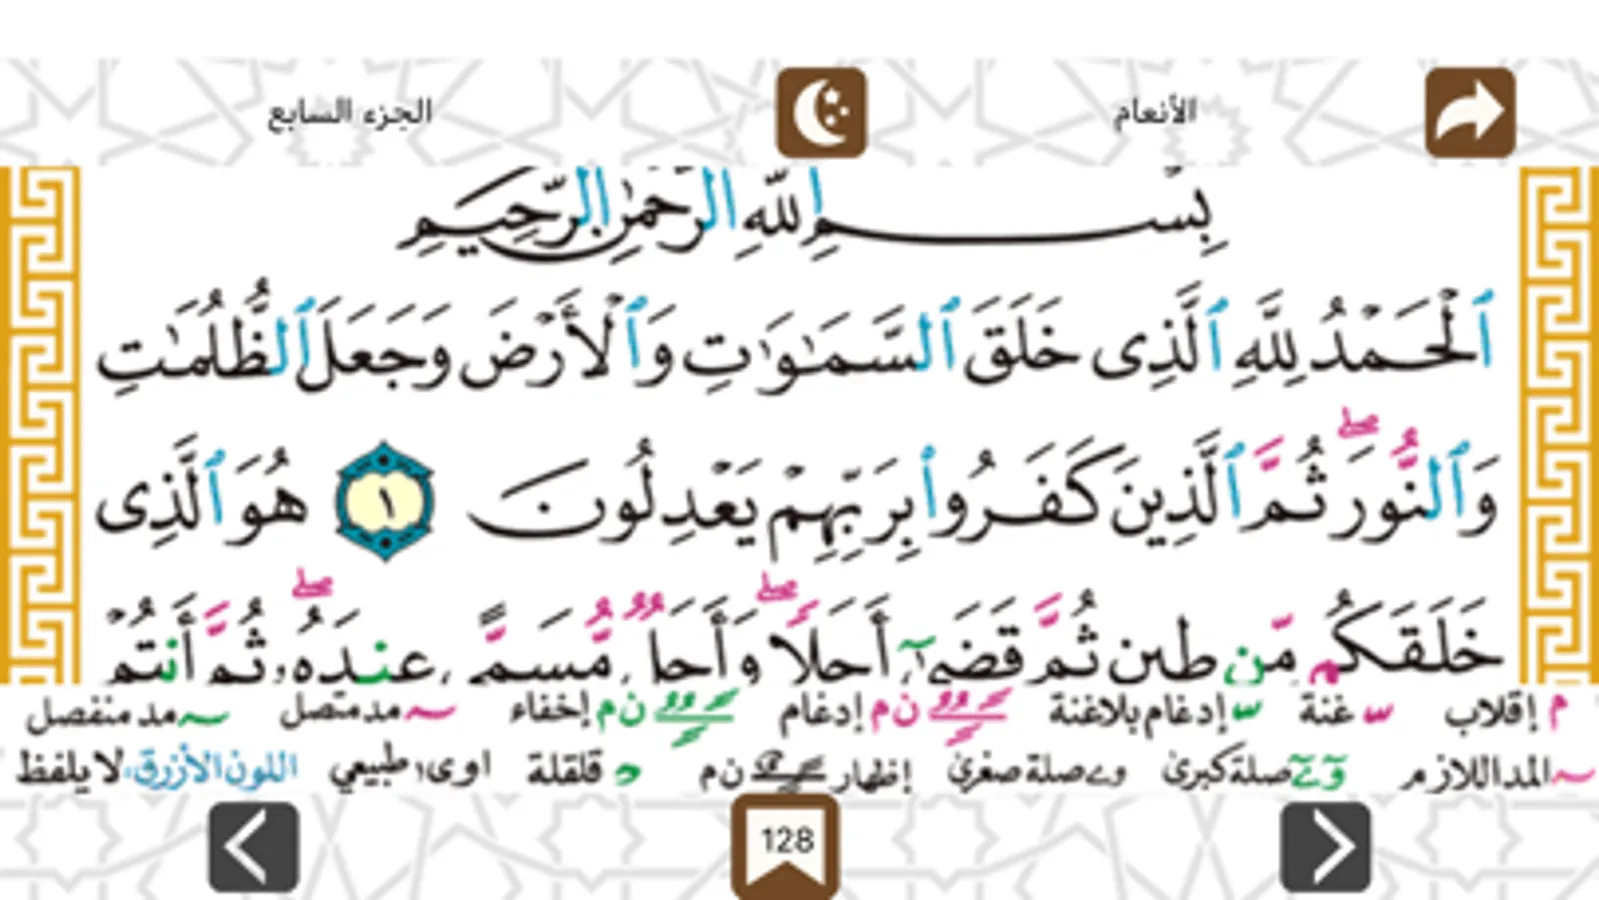 الأنعام
الجزء السابع
بِسْمِ اللَّهِ الرَّحْمَٰنِ الرَّحِيمِ
ٱلْحَمْدُ لِلَّهِ ٱلَّذِى خَلَقَ ٱلسَّمَٰوَٰتِ وَٱلْأَرْضَ وَجَعَلَ ٱلظُّلُمَٰتِ
وَٱلنُّورَ ۖ ثُمَّ ٱلَّذِينَ كَفَرُوا۟ بِرَبِّهِمْ يَعْدِلُونَ ١ هُوَ ٱلَّذِى
خَلَقَكُم مِّن طِينٍ ثُمَّ قَضَىٰٓ أَجَلًا ۖ وَأَجَلٌ مُّسَمًّى عِندَهُۥ ۖ ثُمَّ أَنتُمْ
م إقلاب ـّ غنة ـّ إدغام بلاغنة ن م إدغام ن م إخفاء ~ مد متصل ~ مد منفصل
~ المد اللازم و ے صلة كبرىٰ و ے صلة صغرىٰ إظهار ن م قلقلة اوى، طبيعي اللون الأزرق، لا يلفظ
128